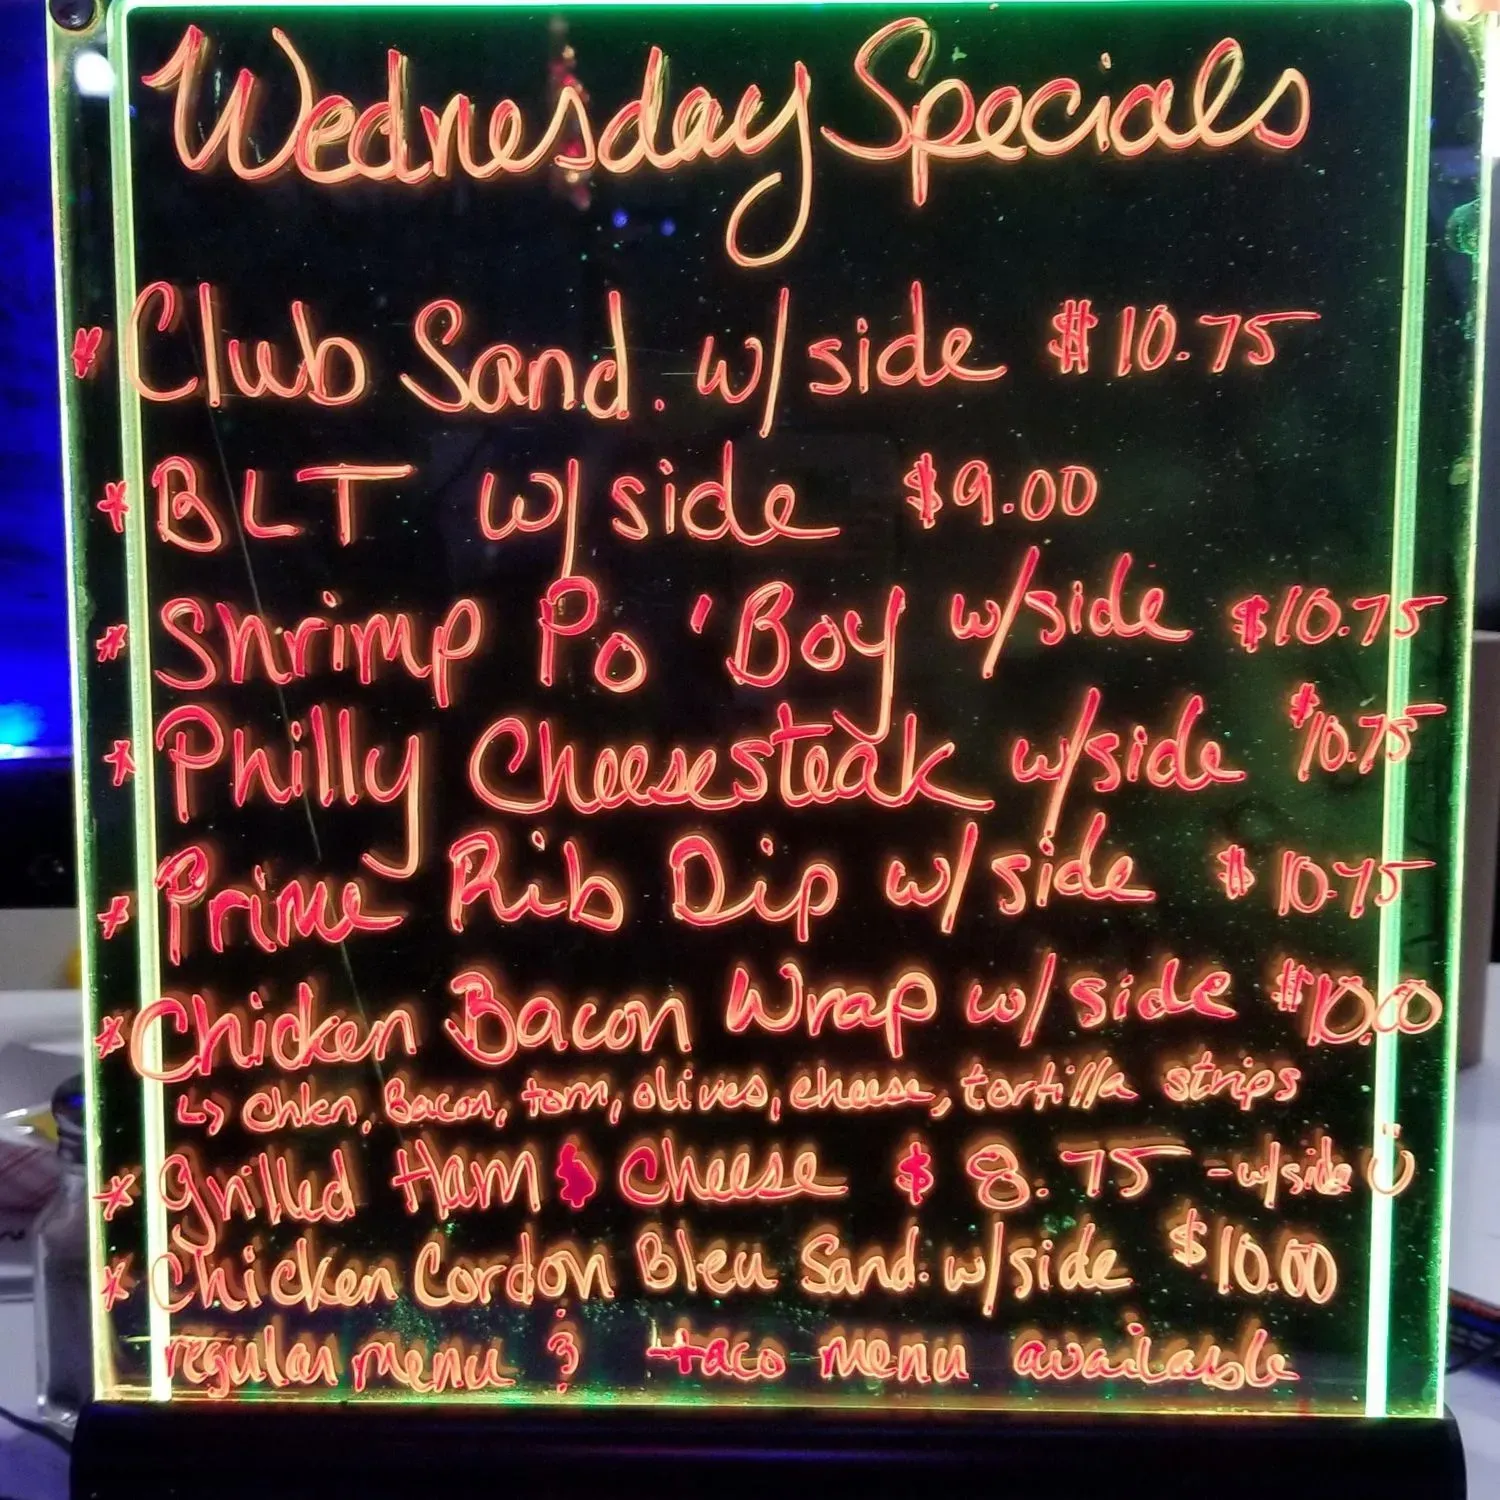 Wednesday Specials
* Club Sand. w/side $10.75
* BLT w/side $9.00
* Shrimp Po 'Boy w/side $10.75
* Philly Cheesesteak w/side $10.75
* Prime Rib Dip w/side $10.75
* Chicken Bacon Wrap w/side $10.00
↳ chkn, Bacon, tom, olives, cheese, tortilla strips
* Grilled Ham & Cheese $8.75 -w/side
* Chicken Cordon Bleu Sand. w/side $10.00
regular menu & taco menu available